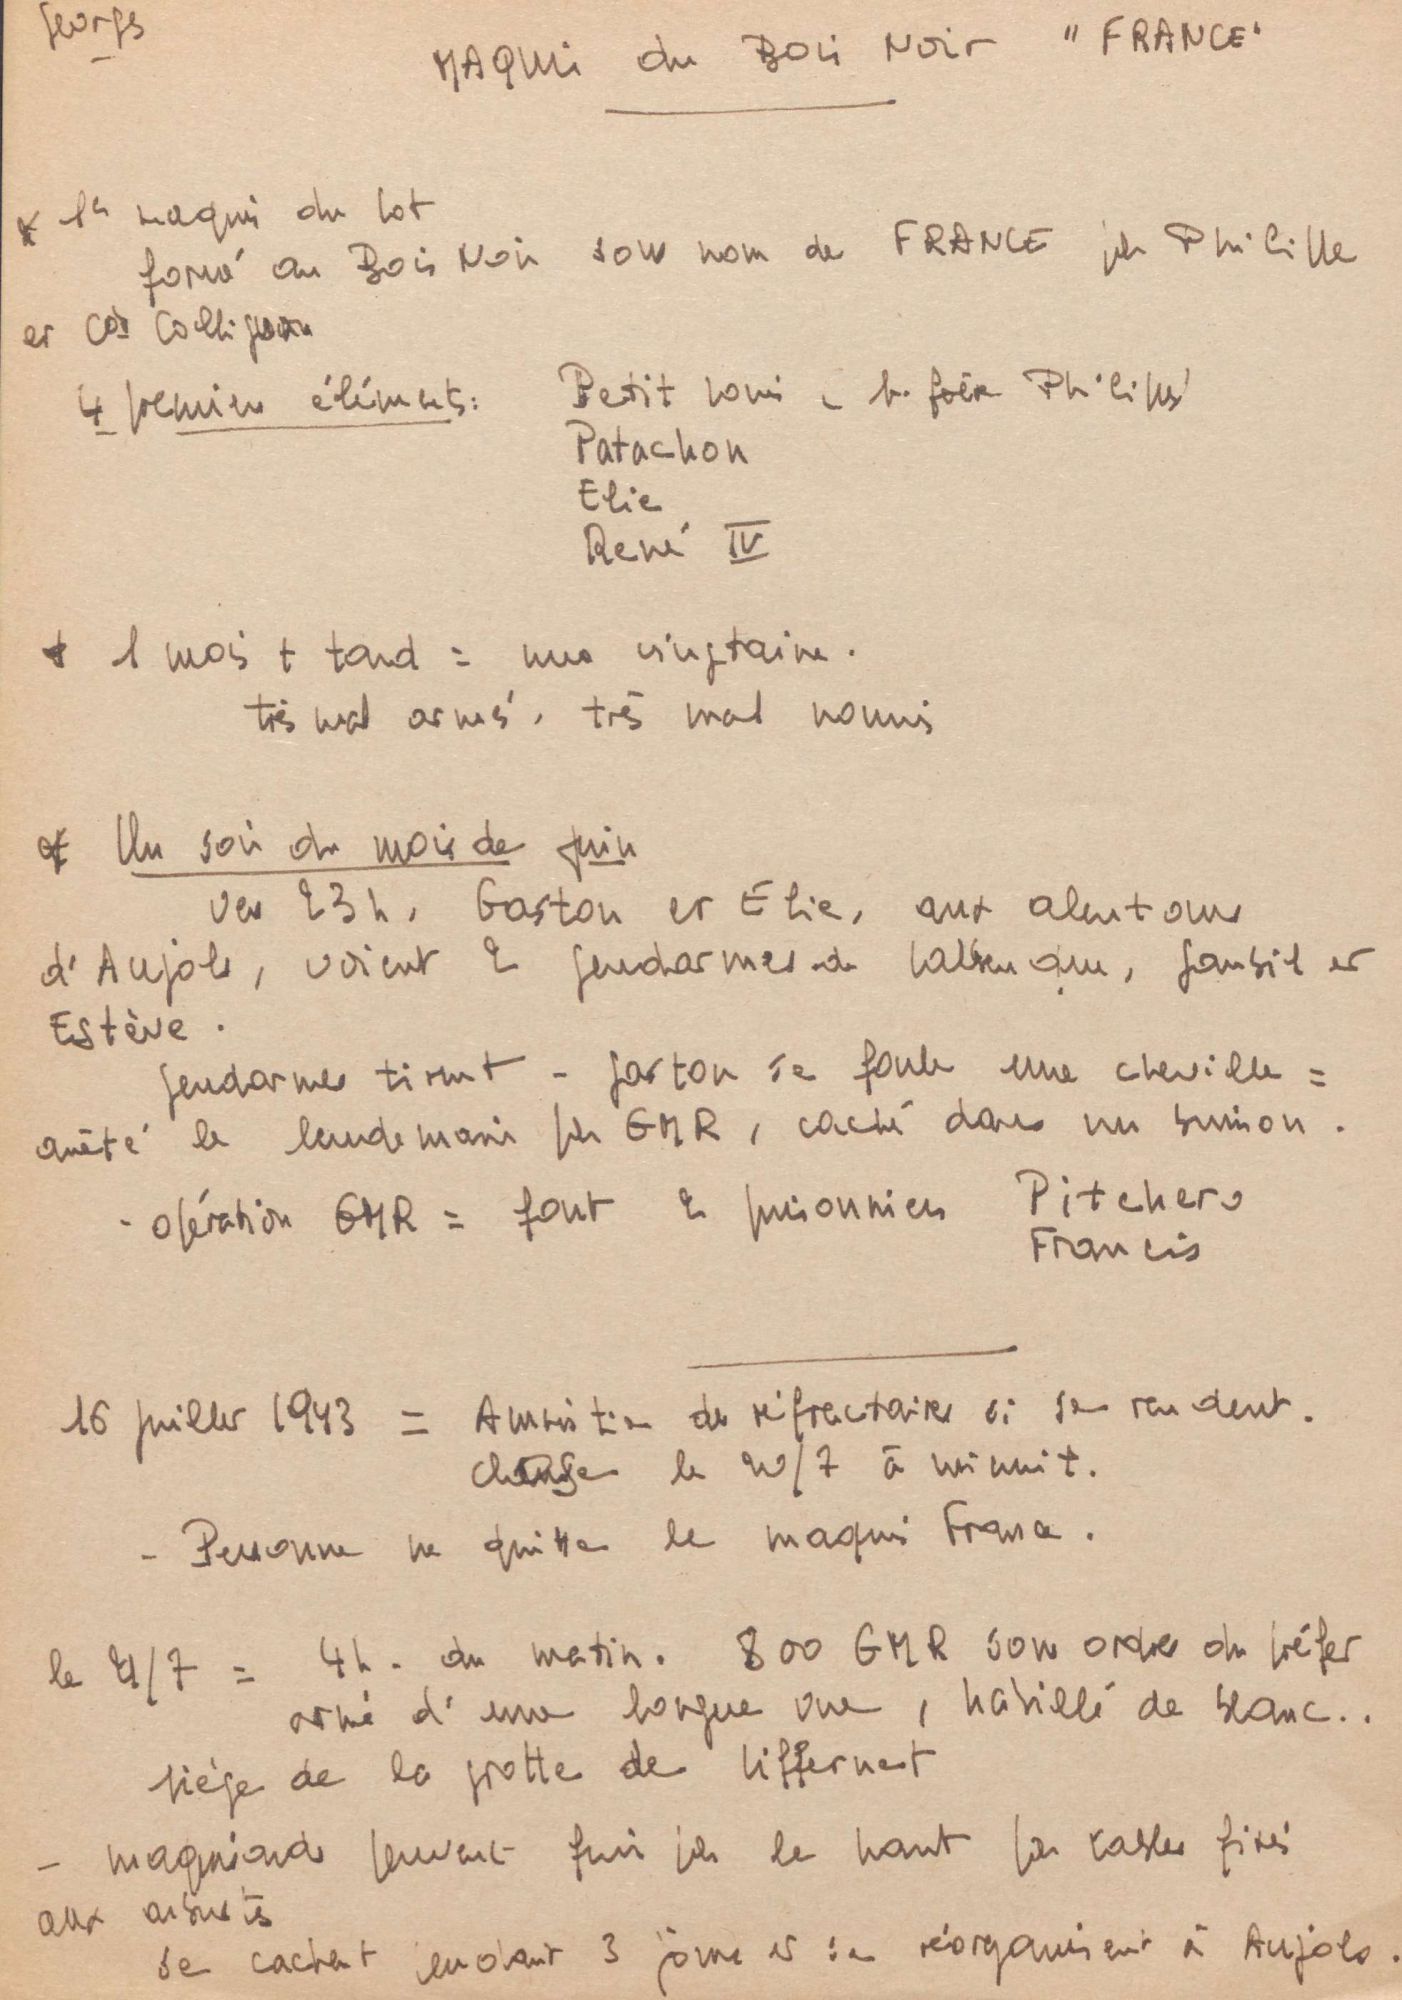 Georges
MAQUI du Bois Noir "FRANCE"
* 1er maqui du Lot
formé au Bois Noir sous nom de FRANCE par Philippe
et Cdt Collignon
4 premiers éléments : Petit Louis - b. frère Philippe
Patachon
Elie
René IV
* 1 mois + tard = une vingtaine.
très mal armés, très mal nourris
* Un soir du mois de juin
vers 23h, Gaston et Elie, aux alentours
d'Aujols, voient 2 gendarmes de Lalbenque, et
Estève.
gendarmes tirent - Gaston se foule une cheville =
arrêté le lendemain par GMR, caché dans un buisson.
- opération GMR = font 2 prisonniers Pitchero
Francis
16 juillet 1943 = Amnistie des réfractaires si se rendent.
le 20/7 à minuit.
- Personne ne quitte le maqui France.
le 21/7 = 4h. du matin. 800 GMR sous ordres du préfet
armé d'une longue vue, habillé de blanc..
siège de la grotte de Liffernet
- maquisards peuvent fuir par le haut par cables fixés
aux arbustes
se cachent pendant 3 jours et se réorganisent à Aujols.